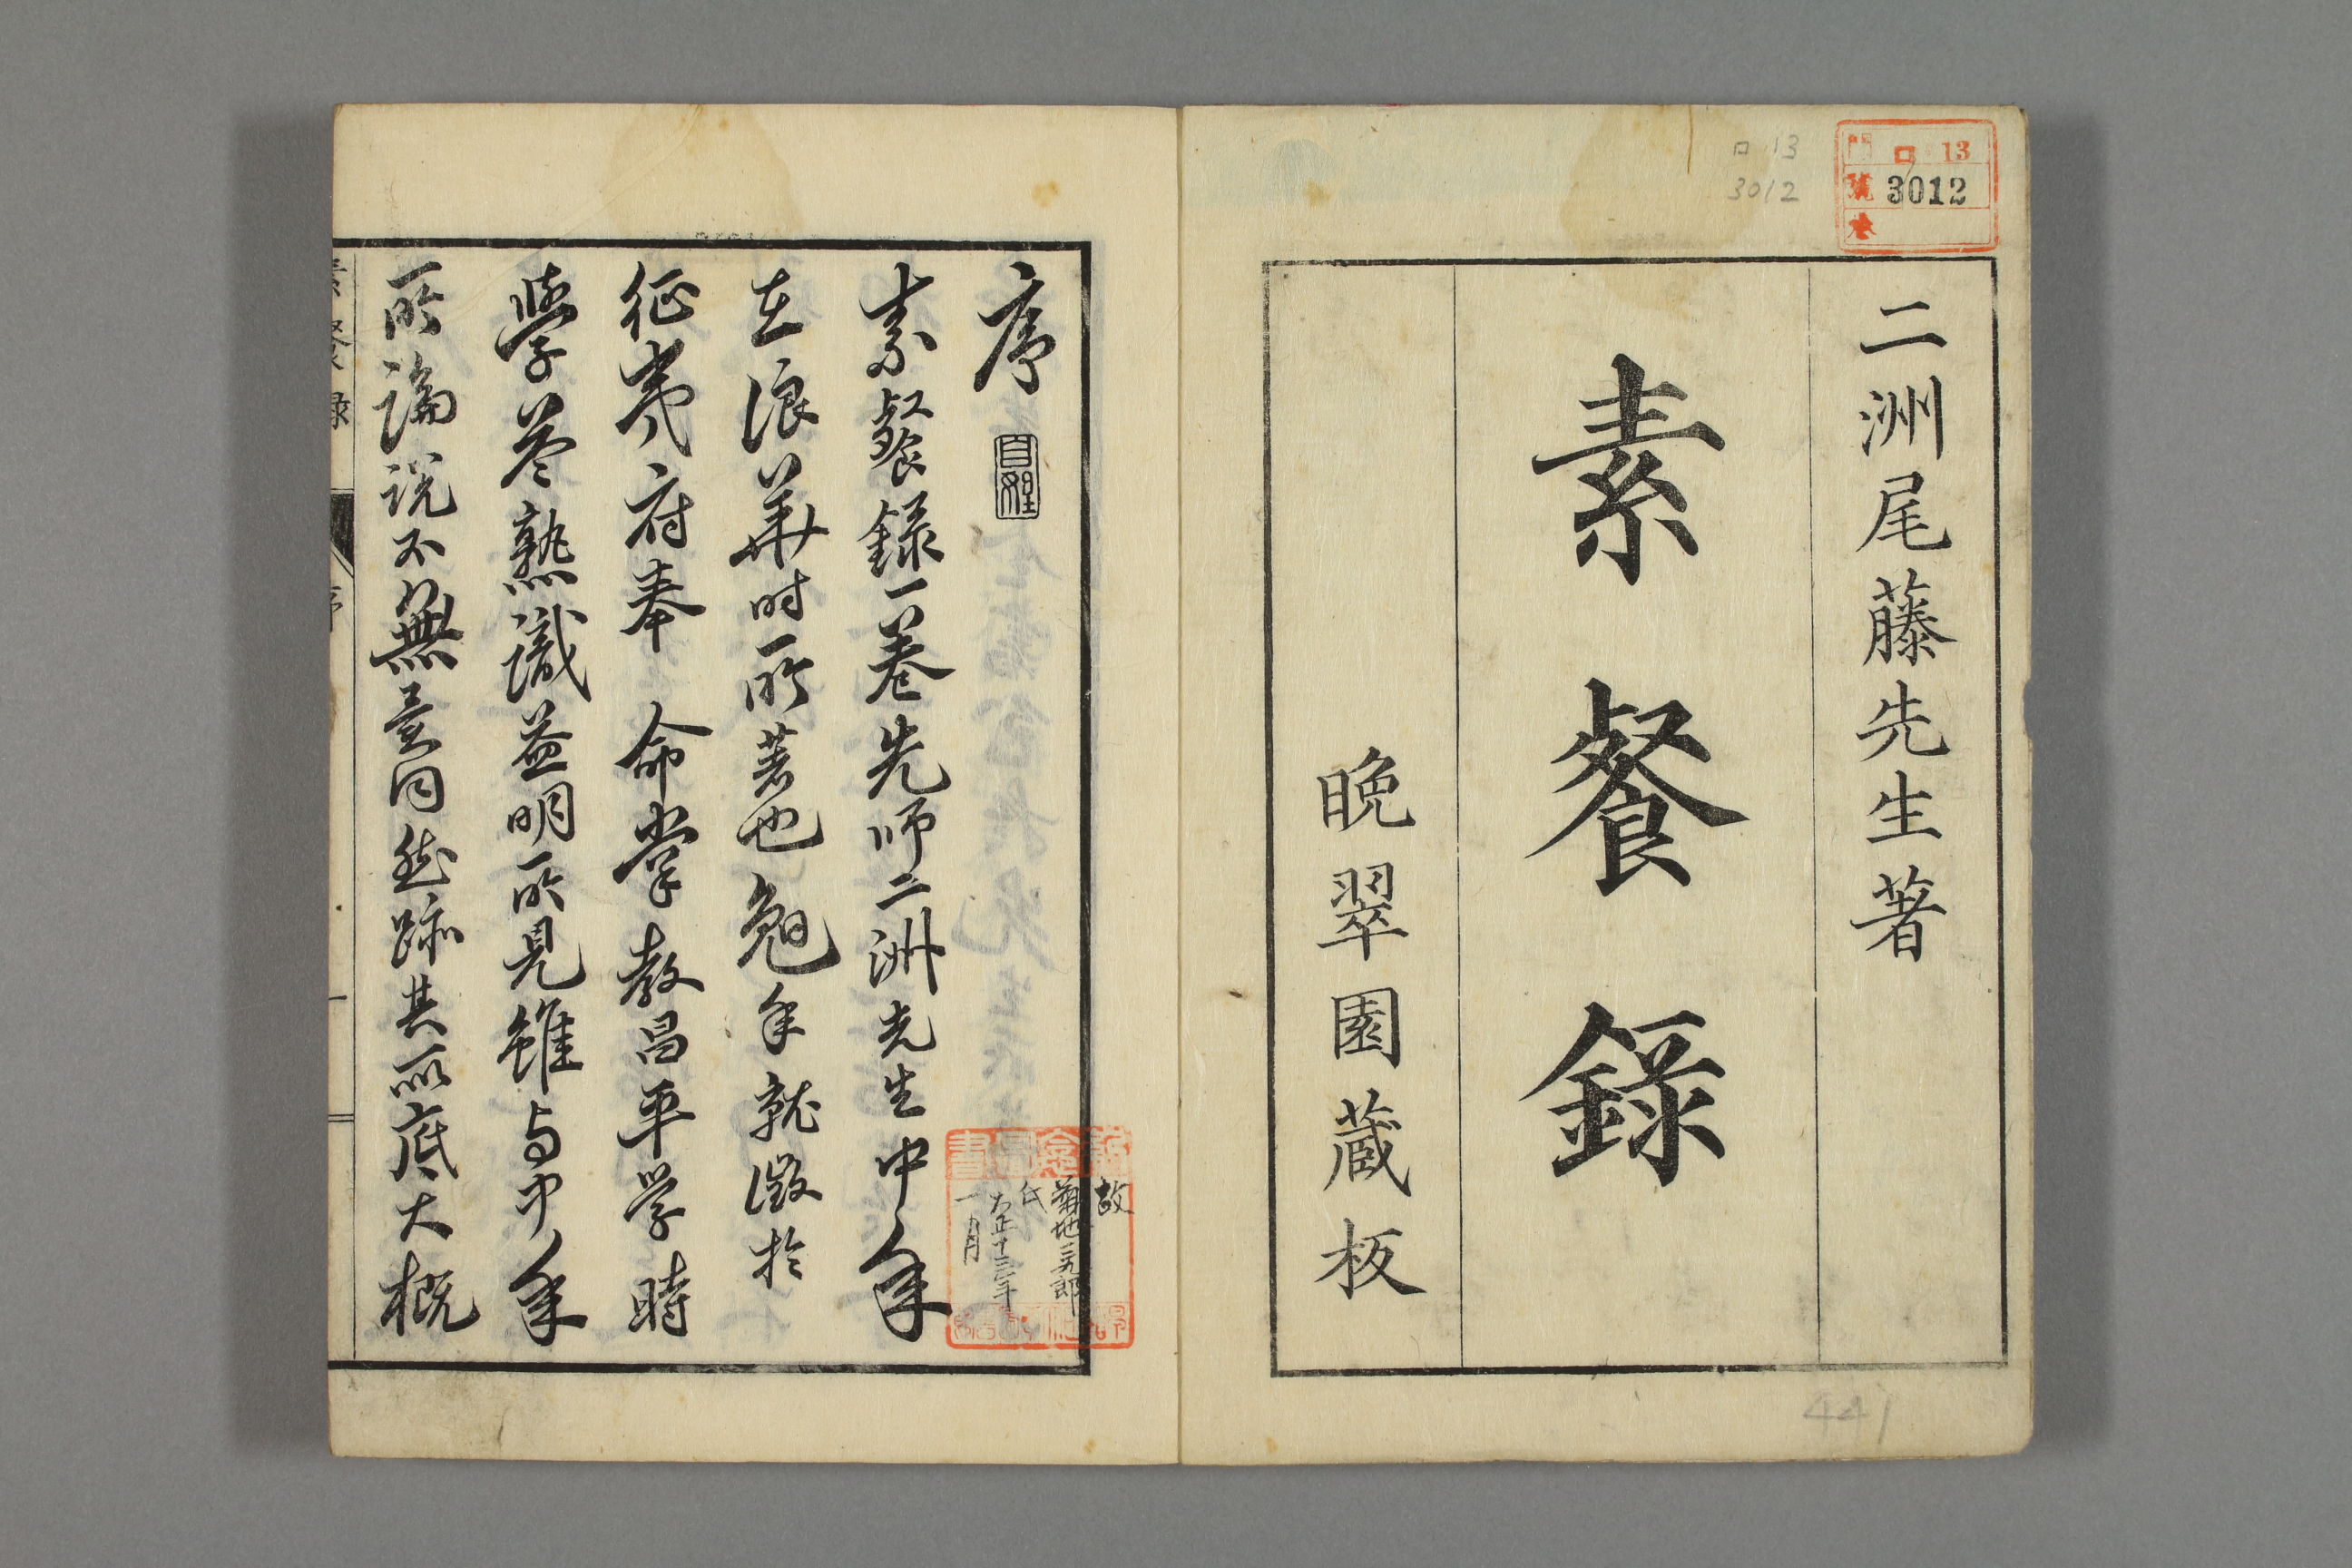 二洲尾藤先生著
素餐錄
晩翠園蔵板
門 ロ 13
號 3012
巻
ロ 13
3012
441
序
素餐録一卷先師二洲先生中年
在浪華時所著也勉年就徵於
征夷府奉 命掌教昌平学時
學益熟識益明所見雖与中年
所論説不無異同然跡其所底大概
故
菊地三九郎
氏
大正十三年
一月
素餐録
序
一